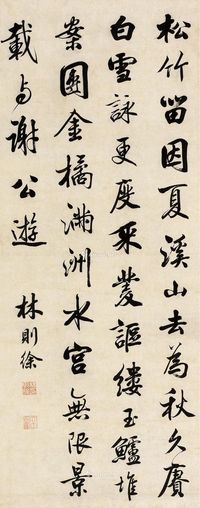 松竹留因夏溪山去為秋久賡
白雪詠更度采菱謳縷玉鱸堆
案團金橘滿洲水宮無限景
載与謝公遊
林則徐